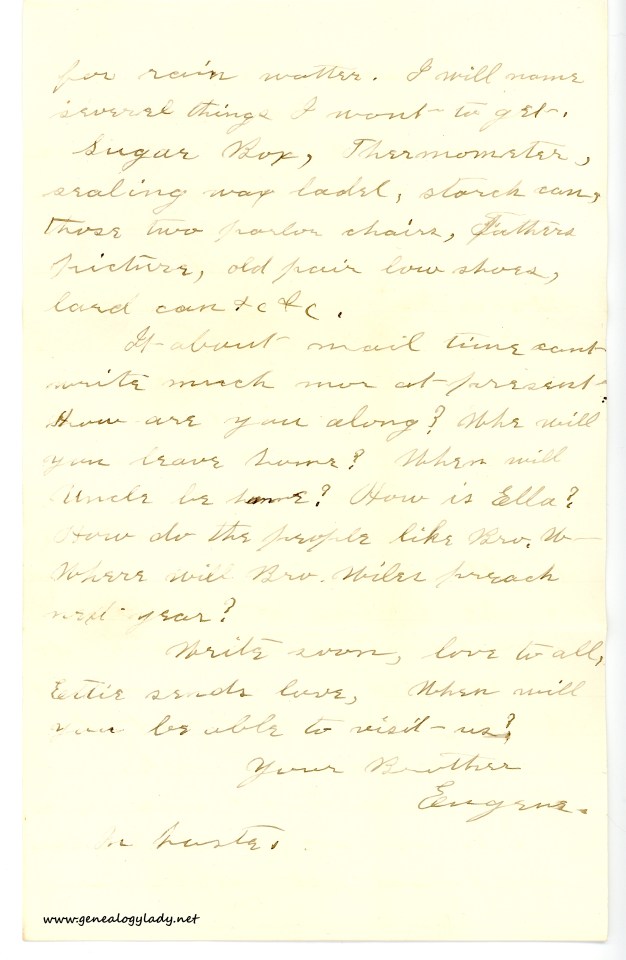 for rain watter. I will name
severel things I want to get.
Sugar Box, Thermometer,
sealing wax ladel, starch can,
those two parlor chairs, Fathers
picture, old pair low shoes,
lard can &c &c.
It about mail time cant
write much mor at present.
How are you along? Whe will
you leave home? When will
Uncle be home? How is Ella?
How do the people like Bro. W—
Where will Bro. Wiles preach
next year?
Write soon, love to all,
Ettie sends love, When will
you be able to visit us?
Your Brother
Eugene.
In haste.
www.genealogylady.net